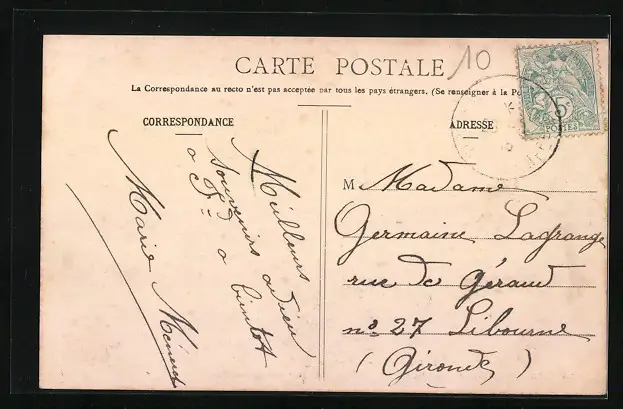 10
CARTE POSTALE
La Correspondance au recto n'est pas acceptée par tous les pays étrangers. (Se renseigner à la Po
CORRESPONDANCE
ADRESSE
5c
POSTES
Meilleurs adieu
souvenirs a bientot
a
Marie
M Madame
Germaine Lagrange
rue de Géraud
no 27 Libourne
(Gironde)